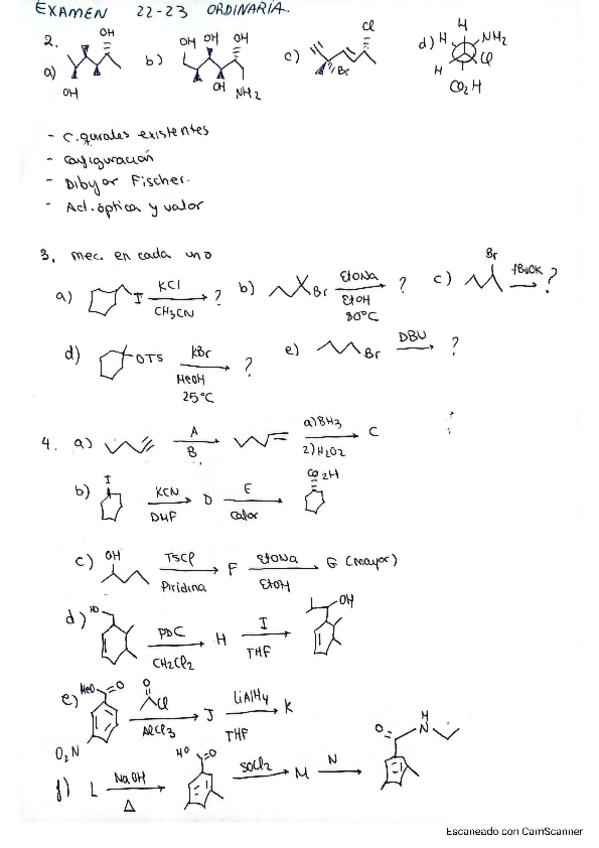 EXAMEN 22-23 ORDINARIA.
2.
a) OH OH
b) OH OH OH OH NH2
c) Cl Br
d) H H NH2 Cl H CO2H
- C. quirales existentes
- Configuración
- Dibujar Fischer.
- Act. óptica y valor
3, mec. en cada uno
a) I KCl CH3CN ?
b) Br EtONa EtOH 80°C ?
c) Br tBuOK ?
d) OTS KBr MeOH 25°C ?
e) Br DBU ?
4. a) A B a) BH3 2) H2O2 C
b) I KCN DMF D E Calor CO2H
c) OH TsCl Piridina F EtONa EtOH G (mayor)
d) HO PDC CH2Cl2 H I THF OH
e) MeO O O2N O Cl AlCl3 J LiAlH4 THF K
f) L NaOH Δ HO O SOCl2 M N O H N
Escaneado con CamScanner